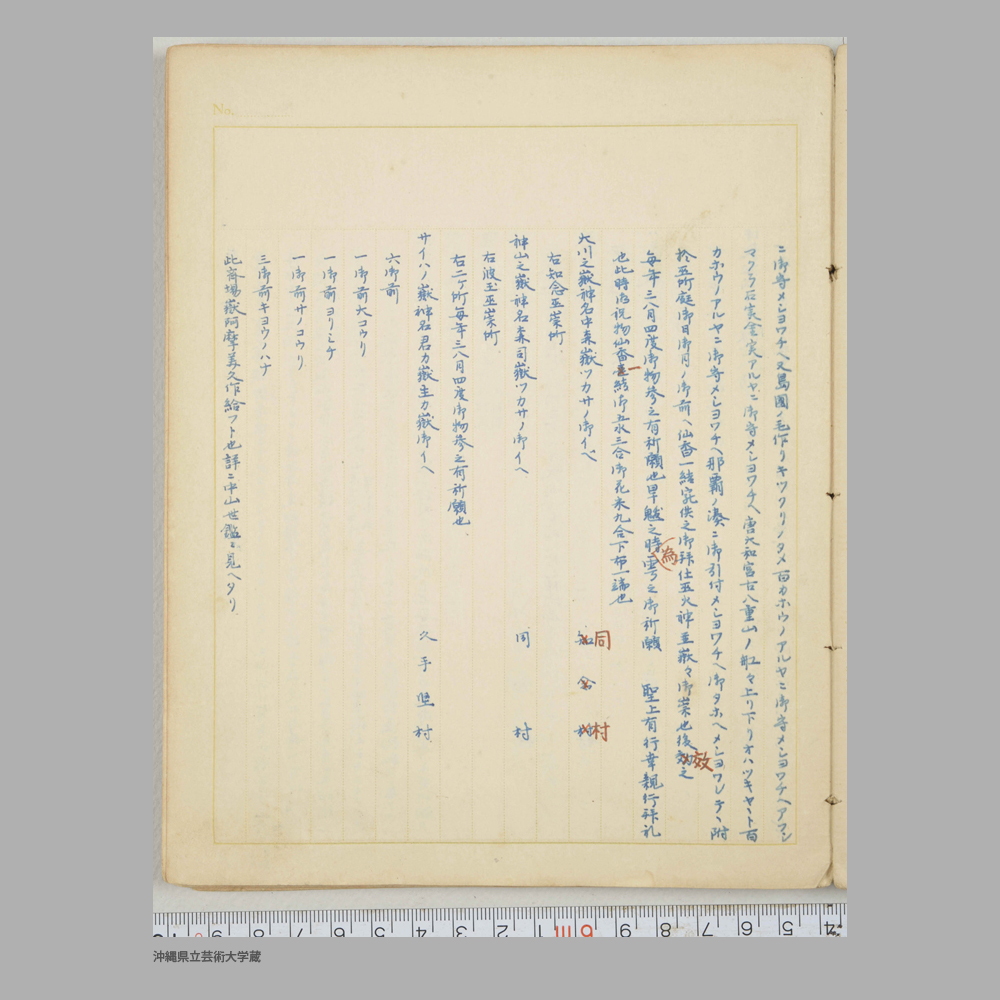 ニ御寄メシヨワチヘ又島國ノ毛作リキツクリノタメ百カホウノアルヤニ御寄メシヨワチヘアマン
マクラ石実金実アルヤニ御寄メシヨワチヘ唐大和宮古八重山ノ船々上リ下リオハツキヤト百
カホウノアルヤニ御寄メシヨワチヘ那覇ノ湊ニ御引付メシヨワチヘ御タホヘメシヨワレデヽ附
拾五所庭御日御月ノ御前ヘ仙香一結宛供之御拜仕五火神並嶽々御崇也後効之
効
毎年三八月四度御物參之有祈願也旱魃之時雩之御祈願 聖上有行幸親行拜礼
(為)
也此時御祝物仙香一結御五水三合御花米九合下布一端也
一
大川之嶽神名中森嶽ツカサノ御イベ 知念村
同村
右知念巫崇所
神山之嶽神名森司嶽ツカサノ御イヘ 同村
右波玉巫崇所
右二ケ所毎年三八月四度御物參之有祈願也
サイハノ嶽神名君カ嶽主カ嶽御イヘ 久手堅村
六御前
一御前大コウリ
一御前ヨリミチ
一御前サノコウリ
三御前キヨウノハナ
此齋場嶽阿摩美久作給フト也詳ニ中山世鑑ニ見ヘタリ
No.
沖縄県立芸術大学蔵